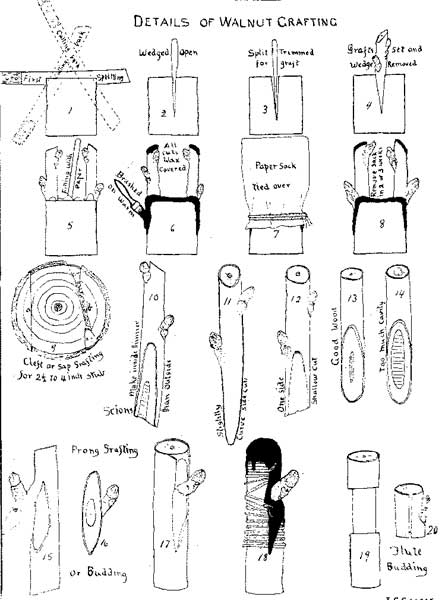 DETAILS OF WALNUT GRAFTING
First Splitting
1
Wedged Open
2
Split Trimmed
for graft
3
Grafts Set and
Wedge Removed
4
Filling With
Paper
5
All
cuts
Wax
Covered
Brushed
on Warm
6
Paper Sack
Tied over
7
Remove Sack
in 2 or 3 weeks
8
9
Cleft or Sap Grafting
for 2½ to 4 inch stub
10
Make inside thinner
than outside
Scions
11
Slightly
Curve side cuts
12
One side
Shallow Cut
13
Good Wood
14
Too much Cavity
15
Prong Grafting
16
or Budding
17
18
19
20
Flute
Budding